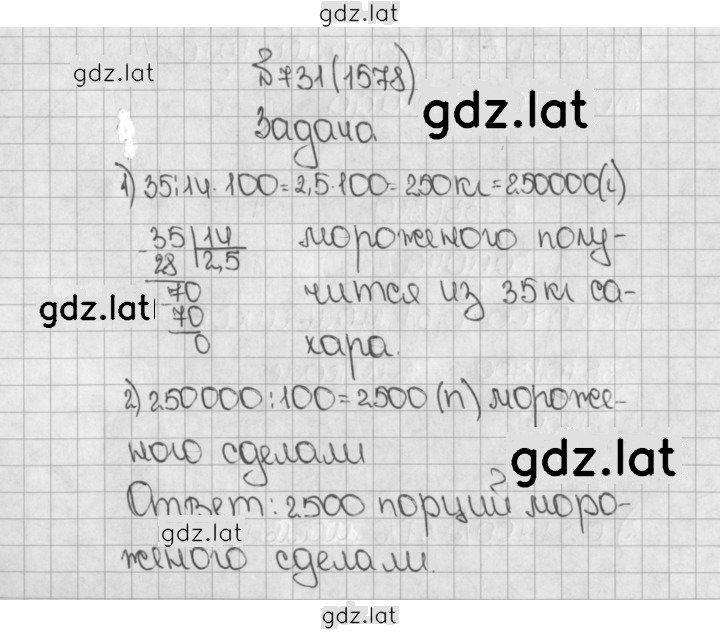 gdz.lat
gdz.lat
№731(1578)
gdz.lat
Задача
1) 35:14·100=2,5·100=250кг=250000(г)
35 14 мороженого полу-
28 2,5
70 чится из 35кг са-
gdz.lat
70
0 хара.
2) 250000:100=2500 (п) мороже-
ного сделали
gdz.lat
Ответ: 2500 порций моро-
gdz.lat
женого сделали.
gdz.lat